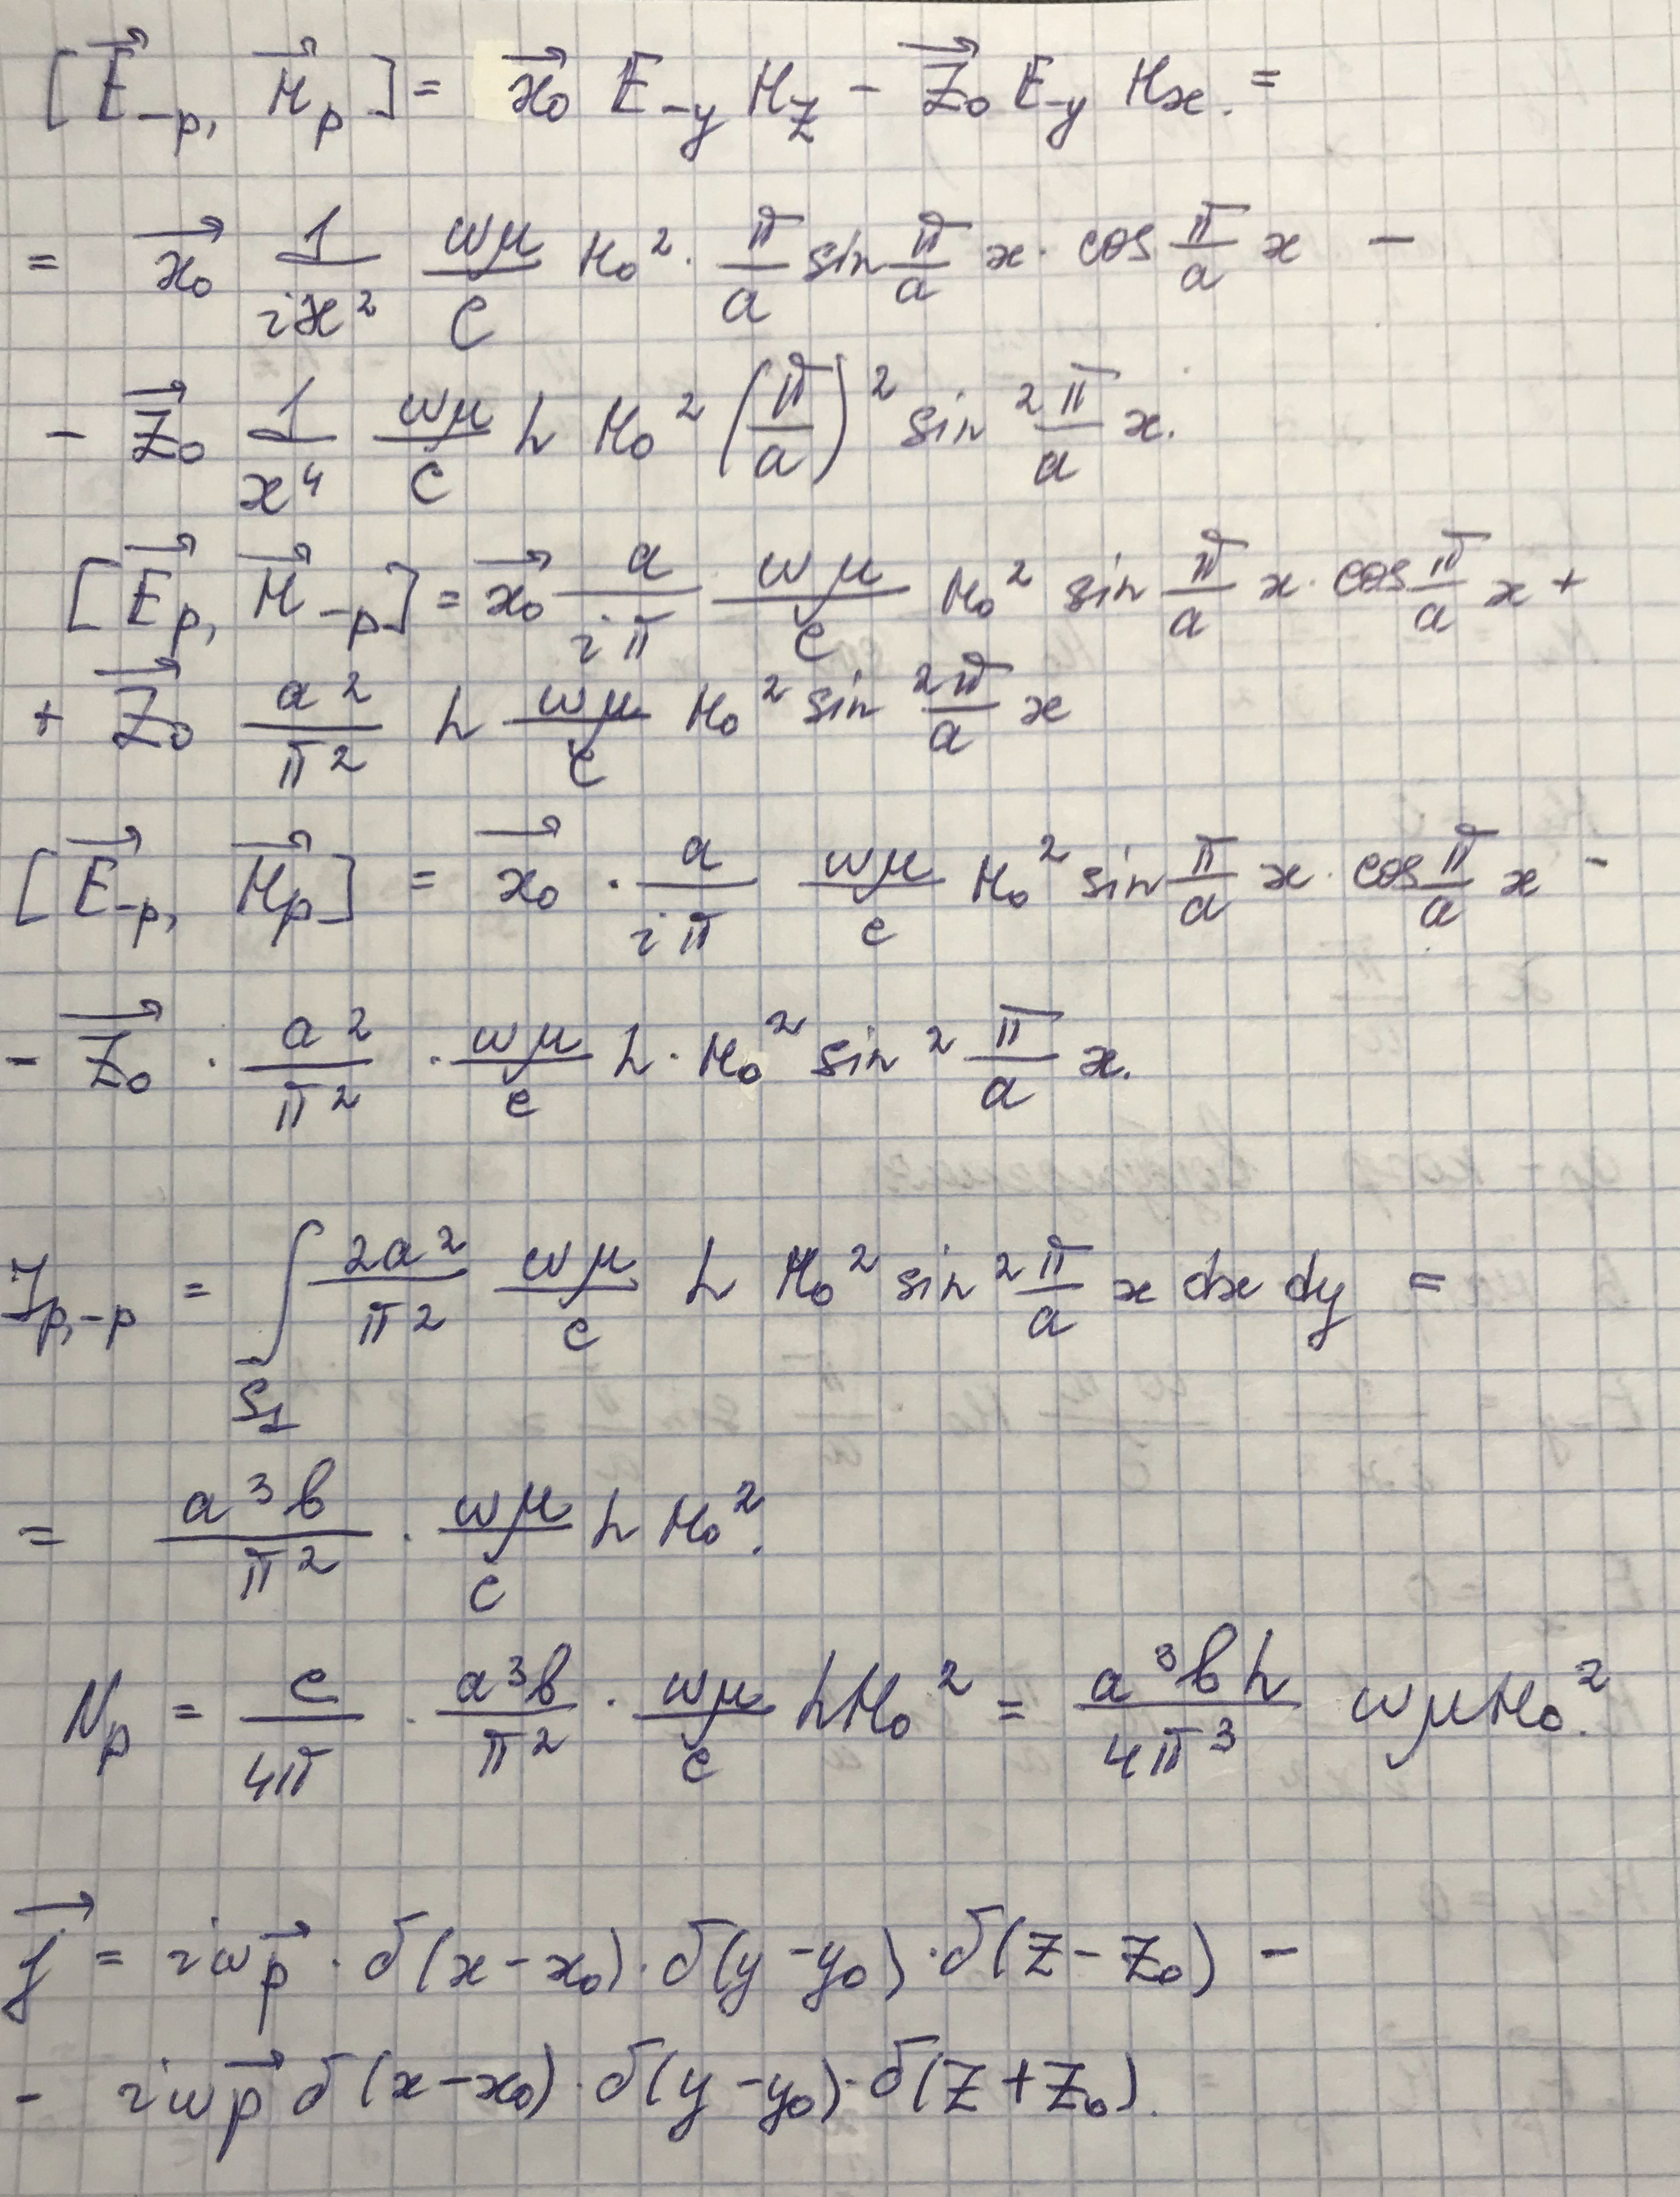 [E⃗₋ₚ, H⃗ₚ] = x⃗₀ E₋y H_z − z⃗₀ E₋y Hₓ. =
= x⃗₀ 1/(iϰ²) ωμ/c H₀² · π/a sin π/a x · cos π/a x −
− z⃗₀ 1/ϰ⁴ ωμ/c h H₀² (π/a)² sin² π/a x.
[E⃗ₚ, H⃗₋ₚ] = x⃗₀ a/(iπ) ωμ/c H₀² sin π/a x · cos π/a x +
+ z⃗₀ a²/π² h ωμ/c H₀² sin² π/a x
[E⃗₋ₚ, H⃗ₚ] = x⃗₀ · a/(iπ) ωμ/c H₀² sin π/a x · cos π/a x −
− z⃗₀ · a²/π² · ωμ/c h · H₀² sin² π/a x.
J_{p,−p} = ∫_{S₁} 2a²/π² ωμ/c h H₀² sin² π/a x dx dy =
= a³b/π² · ωμ/c h H₀².
Nₚ = c/4π · a³b/π² · ωμ/c h H₀² = a³bh/4π³ ωμH₀².
j⃗ = iωp⃗ · δ(x − x₀) · δ(y − y₀) · δ(z − z₀) −
− iωp⃗ δ(x − x₀) · δ(y − y₀) · δ(z + z₀).